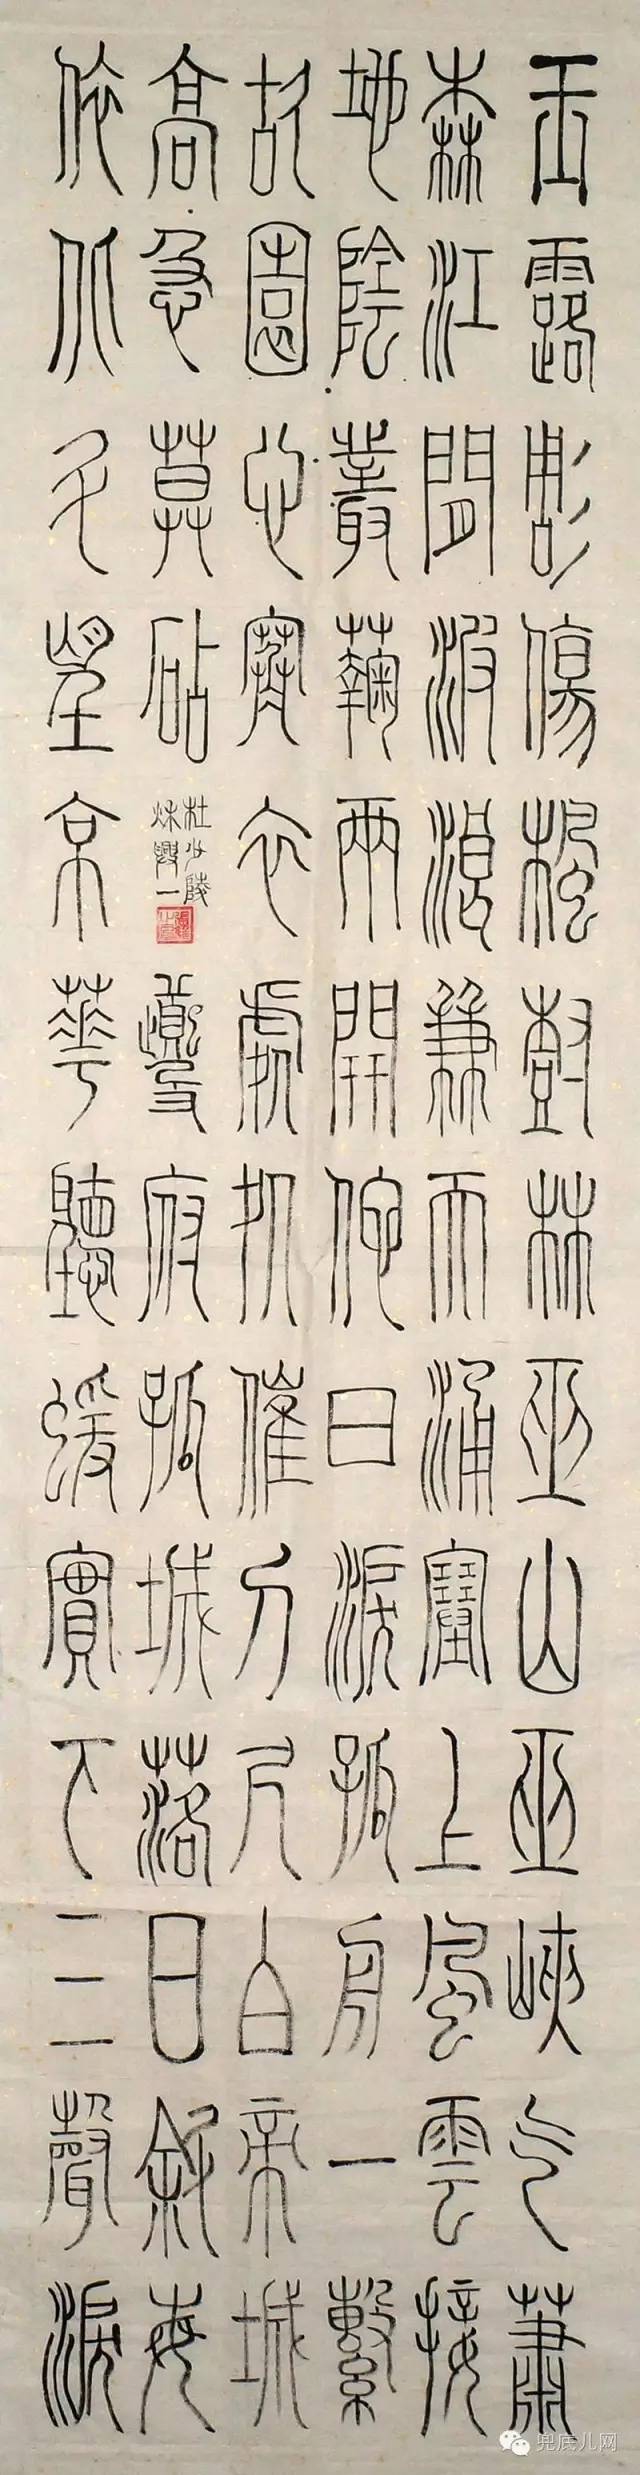 玉露彫傷楓樹林巫山巫峽气蕭
森江閒波浪兼天涌塞上風雲接
地陰叢菊兩開他日淚孤舟一繫
故園心寒衣處処催刀尺白帝城
高急莫砧
杜少陵
秌興一
夔府孤城落日斜每
依北斗望京華聽蝯實下三聲淚
兜底儿网